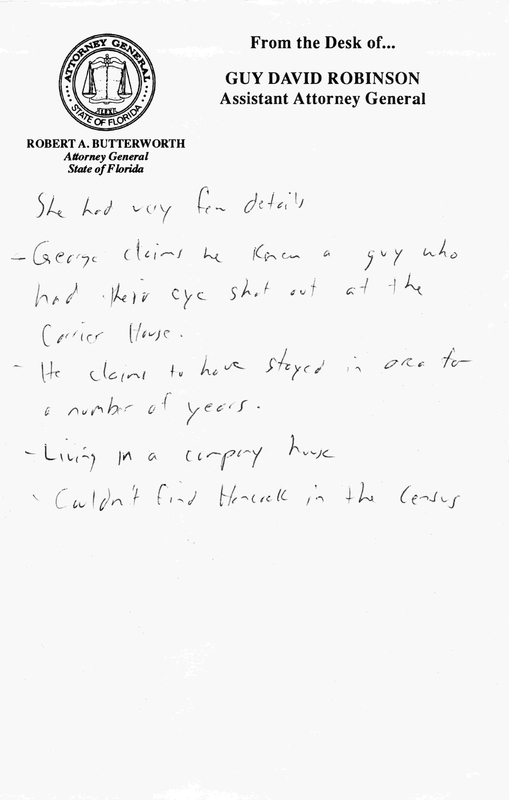 ATTORNEY GENERAL
STATE OF FLORIDA
ROBERT A. BUTTERWORTH
Attorney General
State of Florida
From the Desk of...
GUY DAVID ROBINSON
Assistant Attorney General
She had very few details
- George claims he knew a guy who
had their eye shot out at the
Carrier House.
- He claims to have stayed in area for
a number of years.
- Living in a company house
- Couldn't find Hancock in the Census